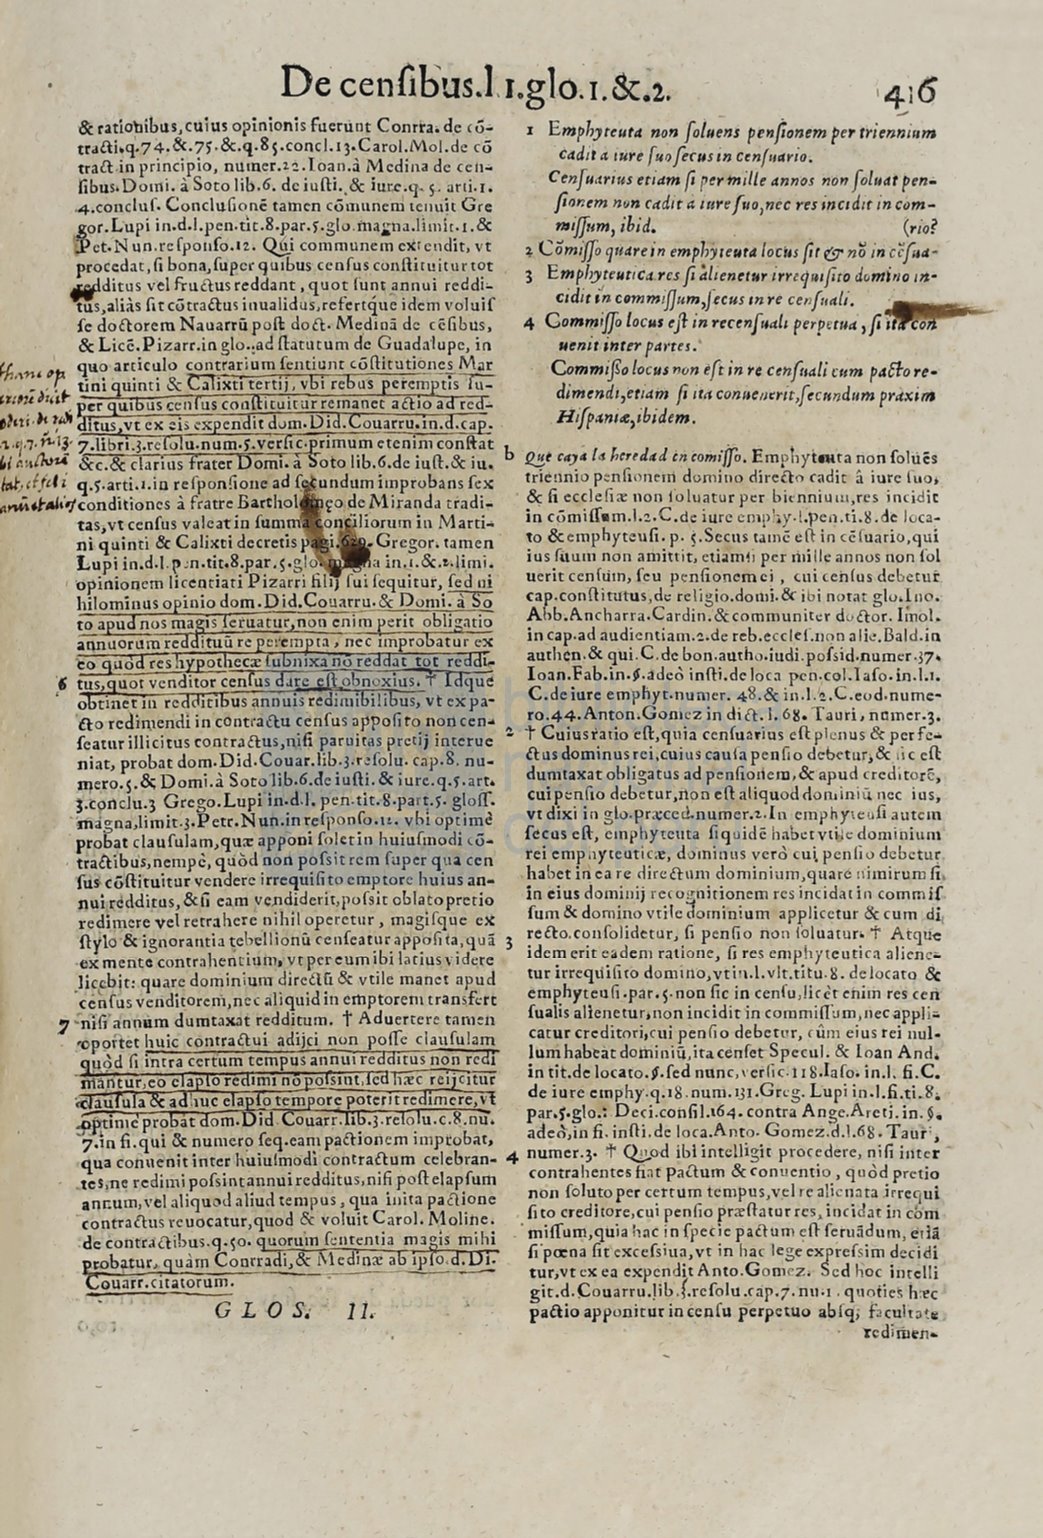 De censibus.l 1.glo.1.&.2.
416
& rationibus, cuius opinionis fuerunt Conrra. de cõ-
tracti.q.74.&.75.&.q.85.concl.13.Carol.Mol.de cõ
tract.in principio, numer.22.Ioan.à Medina de cen-
sibus.Domi. à Soto lib.6. de iusti. & iure.q. 5. arti.1.
4.conclus. Conclusionẽ tamen cõmunem tenuit Gre
gor.Lupi in.d.l.pen.tit.8.par.5.glo.magna.limit.1.&
Pet.Nun.responso.12. Qui communem extendit, vt
procedat, si bona, super quibus census constituitur tot
redditus vel fructus reddant, quot sunt annui reddi-
tus, aliàs sit cõtractus inualidus, refertque idem voluis
se doctorem Nauarrũ post doct. Medinã de cẽsibus,
& Licẽ.Pizarr.in glo..ad statutum de Guadalupe, in
quo articulo contrarium sentiunt cõstitutiones Mar
tini quinti & Calixti tertij, vbi rebus peremptis su-
per quibus census constituitur remanet actio ad red-
ditus, vt ex eis expendit dom.Did.Couarru.in.d.cap.
7.libri.3.resolu.num.5.versic.primum etenim constat
&c.& clarius frater Domi. à Soto lib.6.de iust.& iu.
q.5.arti.1.in responsione ad secundum improbans sex
conditiones à fratre Bartholomeo de Miranda tradi-
tas, vt census valeat in summa conciliorum in Marti-
ni quinti & Calixti decretis pagi. Gregor. tamen
Lupi in.d.l.pen.tit.8.par.5.glo. magna in.1.&.2.limi.
opinionem licentiati Pizarri filij sui sequitur, sed ni
hilominus opinio dom.Did.Couarru.& Domi. à So
to apud nos magis seruatur, non enim perit obligatio
annuorum reddituũ re perempta, nec improbatur ex
eo quod res hypothecæ subnixa nõ reddat tot reddi-
6 tus, quot venditor census dare est obnoxius. † Idque
obtinet in redditibus annuis redimibilibus, vt ex pa-
cto redimendi in contractu census apposito non cen-
seatur illicitus contractus, nisi paruitas pretij interue
niat, probat dom.Did.Couar.lib.3.resolu. cap.8. nu-
mero.5.& Domi.à Soto lib.6.de iusti.& iure.q.5.art.
3.conclu.3 Grego.Lupi in.d.l. pen.tit.8.part.5. gloss.
magna, limit.3.Petr.Nun.in responso.12. vbi optimè
probat clausulam, quæ apponi solet in huiusmodi cõ-
tractibus, nempè, quòd non possit rem super qua cen
sus cõstituitur vendere irrequisito emptore huius an-
nui redditus, & si eam vendiderit, possit oblato pretio
redimere vel retrahere nihil operetur, magisque ex
stylo & ignorantia tebellionũ censeatur apposita, quã
ex mente contrahentium, vt per eum ibi latius videre
licebit: quare dominium directũ & vtile manet apud
census venditorem, nec aliquid in emptorem transfert
7 nisi annum dumtaxat redditum. † Aduertere tamen
oportet huic contractui adijci non posse clausulam
quòd si intra certum tempus annui redditus non redi
mantur, eo elapso redimi nõ possint, sed hæc reijcitur
clausula & adhuc elapso tempore poterit redimere, vt
optimè probat dom.Did Couarr.lib.3.resolu.c.8.nu.
7.in fi.qui & numero seq.eam pactionem improbat,
qua conuenit inter huiusmodi contractum celebran-
tes, ne redimi possint annui redditus, nisi post elapsum
annum, vel aliquod aliud tempus, qua inita pactione
contractus reuocatur, quod & voluit Carol. Moline.
de contractibus.q.50. quorum sententia magis mihi
probatur, quàm Conrradi, & Medinæ ab ipso.d.Di.
Couarr.citatorum.
GLOS. II.
1 Emphyteuta non soluens pensionem per triennium
cadit a iure suo secus in censuario.
Censuarius etiam si per mille annos non soluat pen-
sionem non cadit a iure suo, nec res incidit in com-
missum, ibid. (rio?
2 Cõmisso quare in emphyteuta locus sit & nõ in cẽsua-
3 Emphyteutica res si alienetur irrequisito domino in-
cidit in commissum, secus in re censuali.
4 Commisso locus est in re censuali perpetua, si ita con
uenit inter partes.
Commisso locus non est in re censuali cum pacto re-
dimendi, etiam si ita conuenerit, secundum praxim
Hispaniæ, ibidem.
b Que caya la heredad en comisso. Emphyteuta non soluẽs
triennio pensionem domino directo cadit â iure suo,
& si ecclesiæ non soluatur per biennium, res incidit
in cõmissum.l.2.C.de iure emphy.l.pen.ti.8.de loca-
to & emphyteusi. p. 5.Secus tamẽ est in cẽsuario, qui
ius suum non amittit, etiamsi per mille annos non sol
uerit censum, seu pensionem ei, cui census debetur
cap.constitutus, de religio.domi.& ibi notat glo.Ino.
Abb.Ancharra.Cardin.& communiter doctor. Imol.
in cap.ad audientiam.2.de reb.eccles.non alie.Bald.in
authen.& qui.C.de bon.autho.iudi.possid.numer.37.
Ioan.Fab.in.§.adeò insti.de loca pen.col.Iaso.in.l.1.
C.de iure emphyt.numer. 48.& in.l.2.C.eod.nume-
ro.44.Anton.Gomez in dict.l. 68. Tauri, numer.3.
2 † Cuius ratio est, quia censuarius est plenus & perfe-
ctus dominus rei, cuius causa pensio debetur, & sic est
dumtaxat obligatus ad pensionem, & apud creditorẽ,
cui pensio debetur, non est aliquod dominiũ nec ius,
vt dixi in glo.præced.numer.2.In emphyteusi autem
secus est, emphyteuta siquidẽ habet vtile dominium
rei emphyteuticæ, dominus verò cui pensio debetur
habet in ea re directum dominium, quare nimirum si
in eius dominij recognitionem res incidat in commis
sum & domino vtile dominium applicetur & cum di
recto.consolidetur, si pensio non soluatur. † Atque
3 idem erit eadem ratione, si res emphyteutica aliene-
tur irrequisito domino, vt in.l.vlt.titu.8. de locato &
emphyteusi.par.5.non sic in censu, licèt enim res cen
sualis alienetur, non incidit in commissum, nec appli-
catur creditori, cui pensio debetur, cùm eius rei nul-
lum habeat dominiũ, ita censet Specul. & Ioan And.
in tit.de locato.§.sed nunc, versic.118.Iaso.in.l. fi.C.
de iure emphy.q.18.num.131.Greg. Lupi in.l.fi.ti.8.
par.5.glo.: Deci.consil.164. contra Ange.Areti.in.§.
adeò, in fi. insti.de loca.Anto. Gomez.d.l.68. Taur,
4 numer.3. † Quod ibi intelligit procedere, nisi inter
contrahentes fiat pactum & conuentio, quòd pretio
non soluto per certum tempus, vel re alienata irrequi
sito creditore, cui pensio præstatur res, incidat in com
missum, quia hac in specie pactum est seruãdum, etiã
si pœna sit excessiua, vt in hac lege expressim decidi
tur, vt ex ea expendit Anto.Gomez. Sed hoc intelli
git.d.Couarru.lib.3.resolu.cap.7.nu.1. quoties hæc
pactio apponitur in censu perpetuo absq; facultate
redimen-